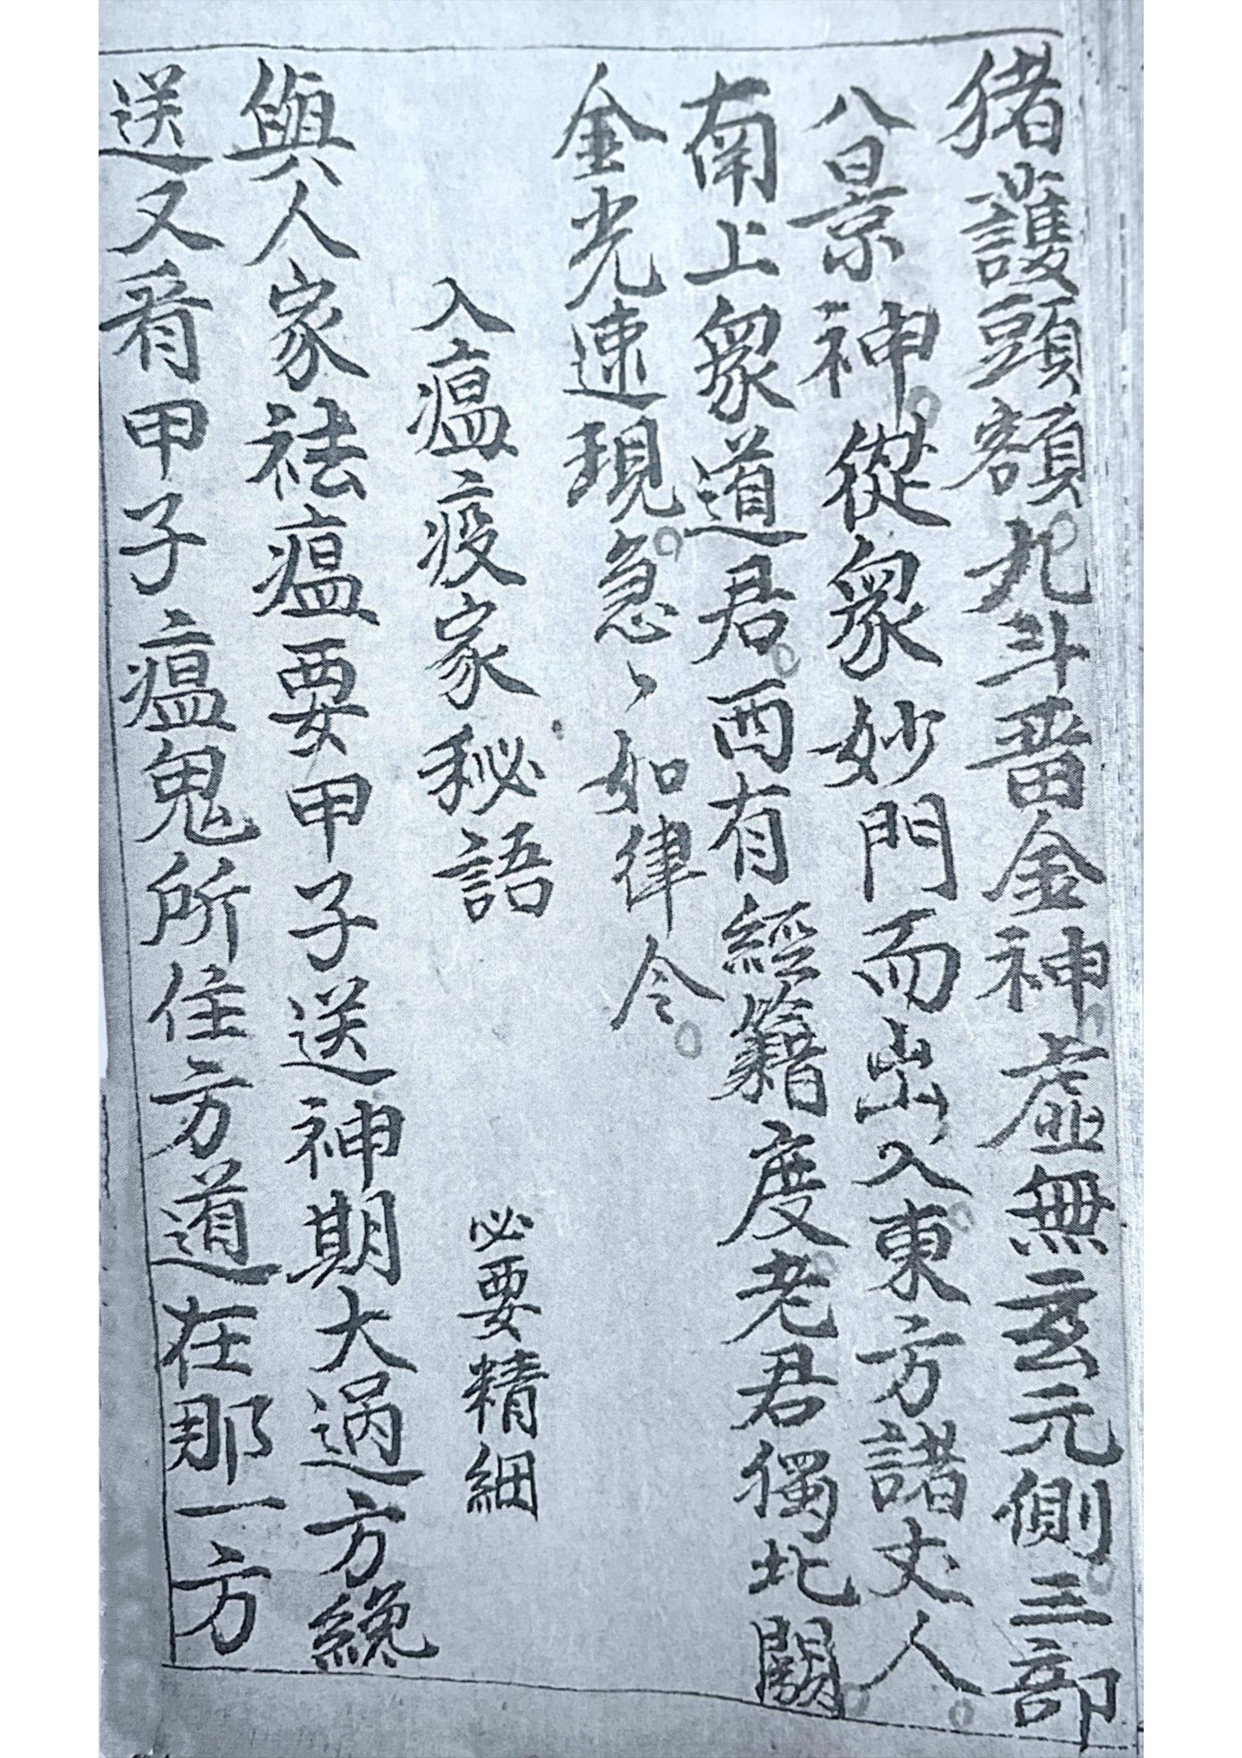 猪護頭額。九斗晋金神。虛無玄元側。三部
八景神。從衆妙門而出入。東方諸丈人。
南上衆道君。西有經籍度。老君獨北闕。
金光速現。急〻如律令。
入瘟疫家秘語 必要精細
與人家祛瘟要甲子送神期大過方纔
送又看甲子瘟鬼所住方道在那一方